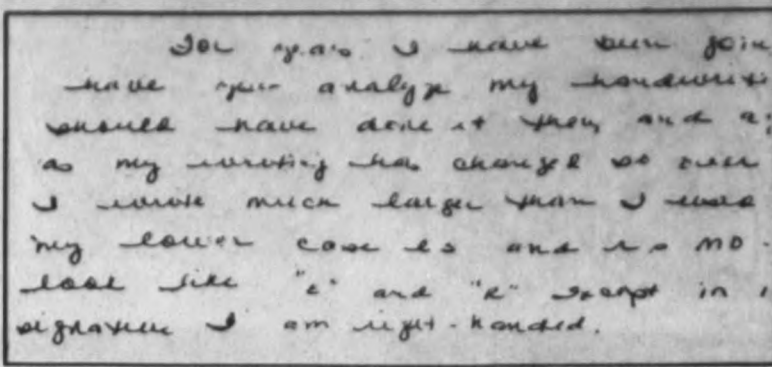 For years I have been goin
have you analyze my handwriti
should have done it then and a
as my writing has changed so over
I wrote much larger than I
my lower case and no mo
look like "e" and "r" except in
signature I am right-handed.